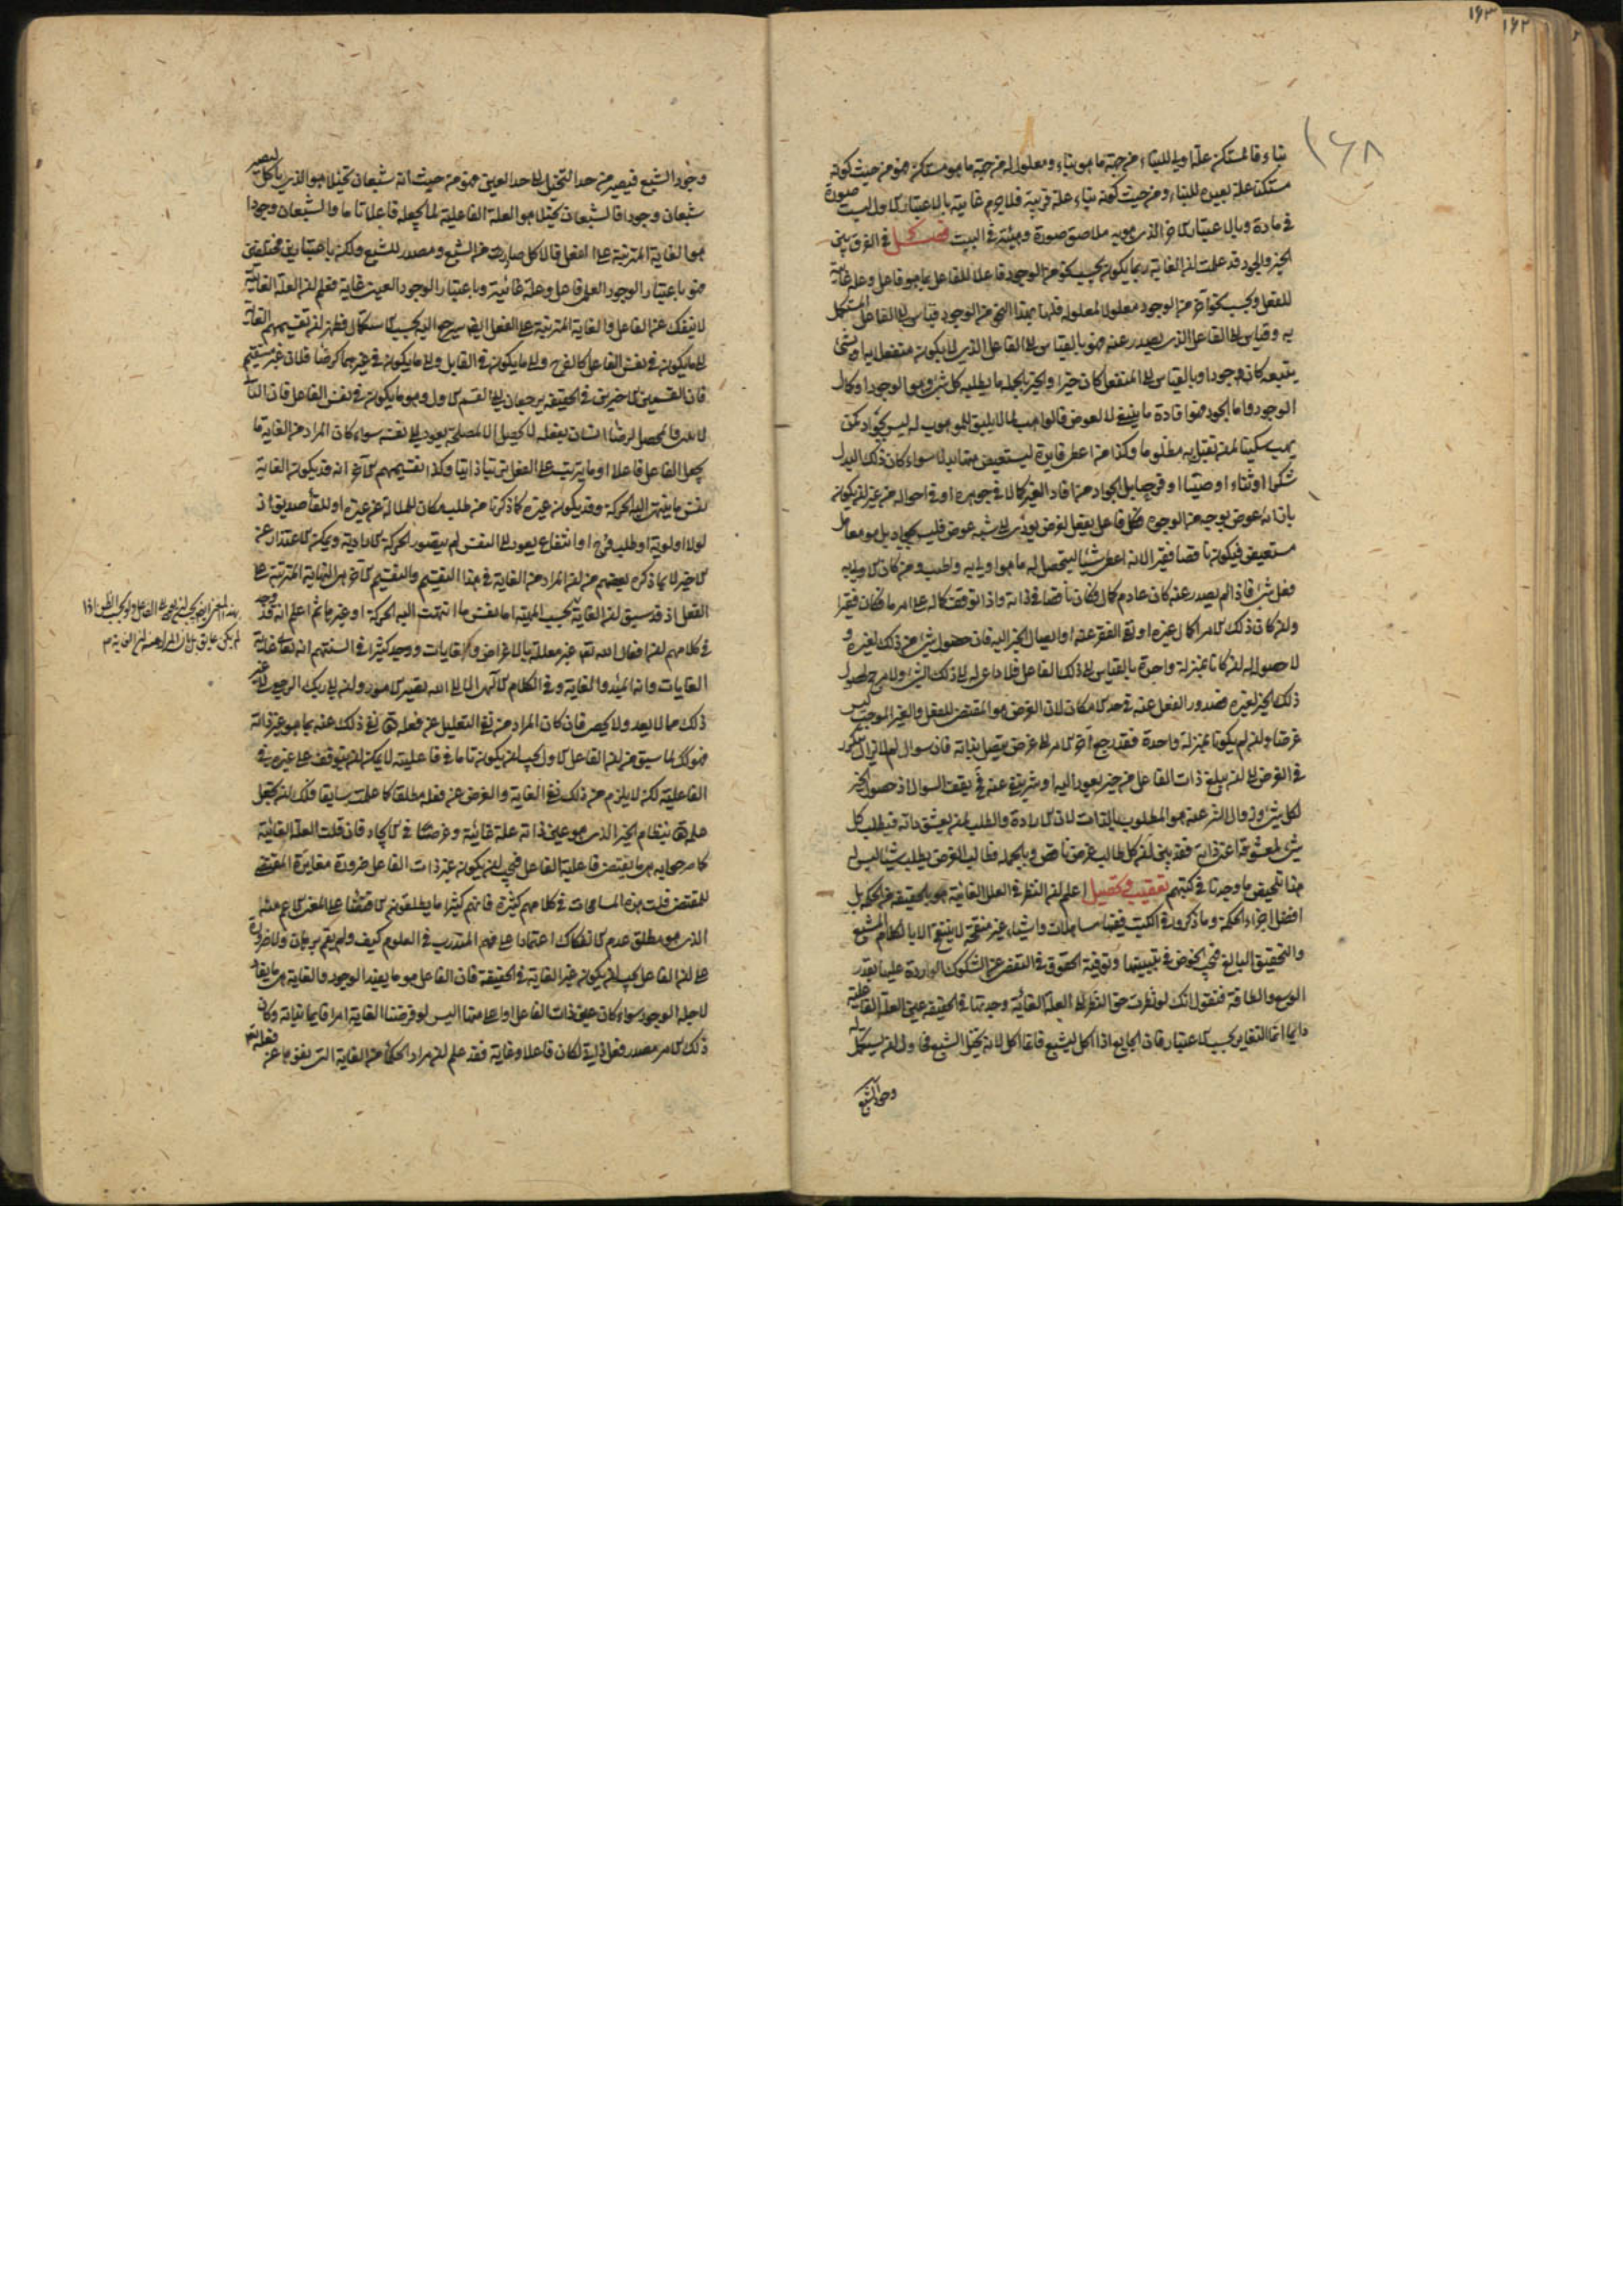 ۱۶۳
۱۶۲
۱۶۸
بناء فالمستكن علة اولى للبناء من جهة ما هو بناء ومعلول له من جهة ما هو مستكن فهو من حيث كونه
مستكنا علة بعيدة للبناء ومن حيث كونه بناء علة قريبة فلا يوم غايته بالاعتبار الاول ليست صورة
في مادة وبالاعتبار الاخر الذي هو به ملاصق صورة وهيئة في البيت فصل في الفرق بين
الخير والجود قد علمت ان الغاية ربما يكون بحسب نحو من الوجود فاعلا للفاعل بما هو فاعل وعلة غائية
للفعل وبحسب نحو آخر من الوجود معلولا لمعلوله فلها بهذا النحو من الوجود قياس الى الفاعل المستكمل
به وقياس الى الفاعل الذي يصدر عنه فهو بالقياس الى الفاعل الذي لا يكون منفعلا به او بشئ
يتبعه كان جودا وبالقياس الى المنفعل كان خيرا والخير بالجملة ما يطلبه كل شئ وهو الوجود او كمال
الوجود واما الجود فهو افادة ما ينبغي لا لعوض فالواهب لما لا يليق للموهوب له ليس بجواد كمن
يهب سكينا لمن يقتل به مظلوما وكذا من اعطى فايدة ليستعيض منها بدلا سواء كان ذلك البدل
شكرا او ثناء او صيتا او فرحا بل الجواد من افاد الغير كمالا في جوهره او في احواله من غير ان يكون
بازائه عوض بوجه من الوجوه فكل فاعل يفعل لغرض يؤدى الى شبه عوض فليس بجواد بل هو معامل
مستعيض فيكون ناقصا فقيرا لانه اعطى شيئا ليتحصل له ما هو اولى به واطيب ومن كان الاولى به
فعل شئ فاذا لم يصدر عنه كان عادم كمال فكان ناقصا في ذاته واذا توقف كماله على امر ما فكان فقيرا
وان كان ذلك الامر اكمال غيره او نفى الفقر عنه او ايصال الخير اليه فان حصول شئ من ذلك لغيره و
لا حصوله ان كانا بمنزلة واحدة بالقياس الى ذلك الفاعل فلا داعي له الى ذلك الشئ ولا مرجح لحصول
ذلك الخير لغيره فصدور الفعل عنه في حد الامكان لان الغرض هو المقتضى للفعل والغير الموجب ليس
غرضا وان لم يكونا بمنزلة واحدة فقد رجع آخر الامر الى غرض يتصل بذاته فان سوال لم لا يزال يتكرر
في الغرض الى ان يبلغ ذات الفاعل من خير يعود اليه او شر ينفى عنه فح يقف السوال اذ حصول الخير
لكل شئ وزوال الشر عنه هو المطلوب بالذات لان الارادة والطلب لمن يعشق ذاته فيطلب كل
شئ لمعشوقه اعنى ذاته فقد تبين ان كل طالب غرض ناقص وبالجملة فطالب الغرض يطلب شيئا ليس له
هذا تلخيص ما وجدنا في كتبهم تعقيب وتحصيل اعلم ان النظر في العلل الغائية هو بالحقيقة من الحكمة بل
افضل اجزاء الحكمة وما ذكروه في الكتب ففيها مساهلات واشياء غير منقحة لا يتنقح الا بالكلام المشبع
والتحقيق البالغ فيجب الخوض في تبيينها وتوفية الحقوق في التفصي عن الشكوك الواردة عليها بقدر
الوسع والطاقة فنقول انك لو نظرت حق النظر الى العلة الغائية وجدتها في الحقيقة عين العلة الفاعلية
دايما انما التغاير بحسب الاعتبار فان الجايع اذا اكل ليشبع فانما اكل لانه تخيل الشبع فحاول ان يستكمل له
وجود الشبع
وجود الشبع فيصير من حد التخيل الى حد العين فهو من حيث انه شبعان تخيلا هو الذي ياكل ليصير
شبعان وجودا فالشبعان تخيلا هو العلة الفاعلية لما يجعله فاعلا تاما والشبعان وجودا
هو الغاية المترتبة على الفعل فالاكل صادر من الشبع ومصدر للشبع ولكن باعتبارين مختلفين
فهو باعتبار الوجود العلمي فاعل وعلة غائية وباعتبار الوجود العيني غاية فعلم ان العلة الغائية
لا ينفك عن الفاعل والغاية المترتبة على الفعل ايضا سيرجع اليه بحسب الاستكمال فظهر ان تقسيمهم الغاية
الى ما يكون في نفس الفاعل كالفرح والى ما يكون في القابل والى ما يكون في غيرهما كرضا فلان غير مستقيم
فان القسمين الاخيرين في الحقيقة يرجعان الى القسم الاول وهو ما يكون في نفس الفاعل فان البناء
لا يبني والمحصل لرضا انسان ليفعله لا يحصل الا لمصلحة يعود الى نفسه سواء كان المراد من الغاية ما
يجعل الفاعل فاعلا او ما يترتب على الفعل ترتبا ذاتيا وكذا تقسيمهم الآخر انه قد يكون الغاية
نفس ما ينتهى اليه الحركة وقد يكون غيره كما ذكرنا من طلب مكان للملالة عن غيره او للقاء صديق اذ
لولا اولوية او طلب فرح او انتفاع يعود الى النفس لم يتصور الحركة الارادية ويمكن الاعتذار عن
الاخير لا بما ذكره بعضهم من ان المراد من الغاية في هذا التقسيم والتقسيم الآخر هي النهاية المترتبة على
الفعل اذ قد سبق ان الغاية بحسب المهية اما نفس ما انتهت اليه الحركة او غيرها ثم اعلم انه قد وجد
في كلامهم ان افعال الله تعالى غير معللة بالاغراض والغايات ووجد كثيرا في السنتهم انه تعالى غاية
الغايات وانه المبدء والغاية وفي الكلام الالهي الا الى الله تصير الامور وان الى ربك الرجعى الى غير
ذلك مما لا يعد ولا يحصى فان كان المراد من نفى التعليل عن فعله تعالى نفى ذلك عنه بما هو غير ذاته
فهو كذلك لما سبق من ان الفاعل الاول يجب ان يكون تاما في فاعليته لا يمكن ان يتوقف على غيره في
الفاعلية لكن لا يلزم من ذلك نفى الغاية والغرض عن فعله مطلقا كما علمت سابقا فلك ان تجعل
علمه تعالى بنظام الخير الذي هو عين ذاته علة غائية وغرضا في الايجاد فان قلت العلة الغائية
كما صرحوا به هي ما يقتضى فاعلية الفاعل فيجب ان يكون غير ذات الفاعل ضرورة مغايرة المقتضى
للمقتضى قلت هذه المسامحات في كلامهم كثيرة فانهم كثيرا ما يطلقون الاقتضاء على المعنى الاعم منه
الذي هو مطلق عدم الانفكاك اعتمادا على فهم المتدرب في العلوم كيف ولم يقم برهان ولا ضرورة
على ان الفاعل يجب ان يكون غير الغاية في الحقيقة فان الفاعل هو ما يفيد الوجود والغاية هي ما يفاد
لاجله الوجود سواء كان عين ذات الفاعل او اعلى منها اليس لو فرضنا الغاية امرا قايما بذاته وكان
ذلك الامر مصدر فعل لذاته لكان فاعلا وغاية فقد علم ان مراد الحكماء من الغاية التي نفوها عن فعله تعالى